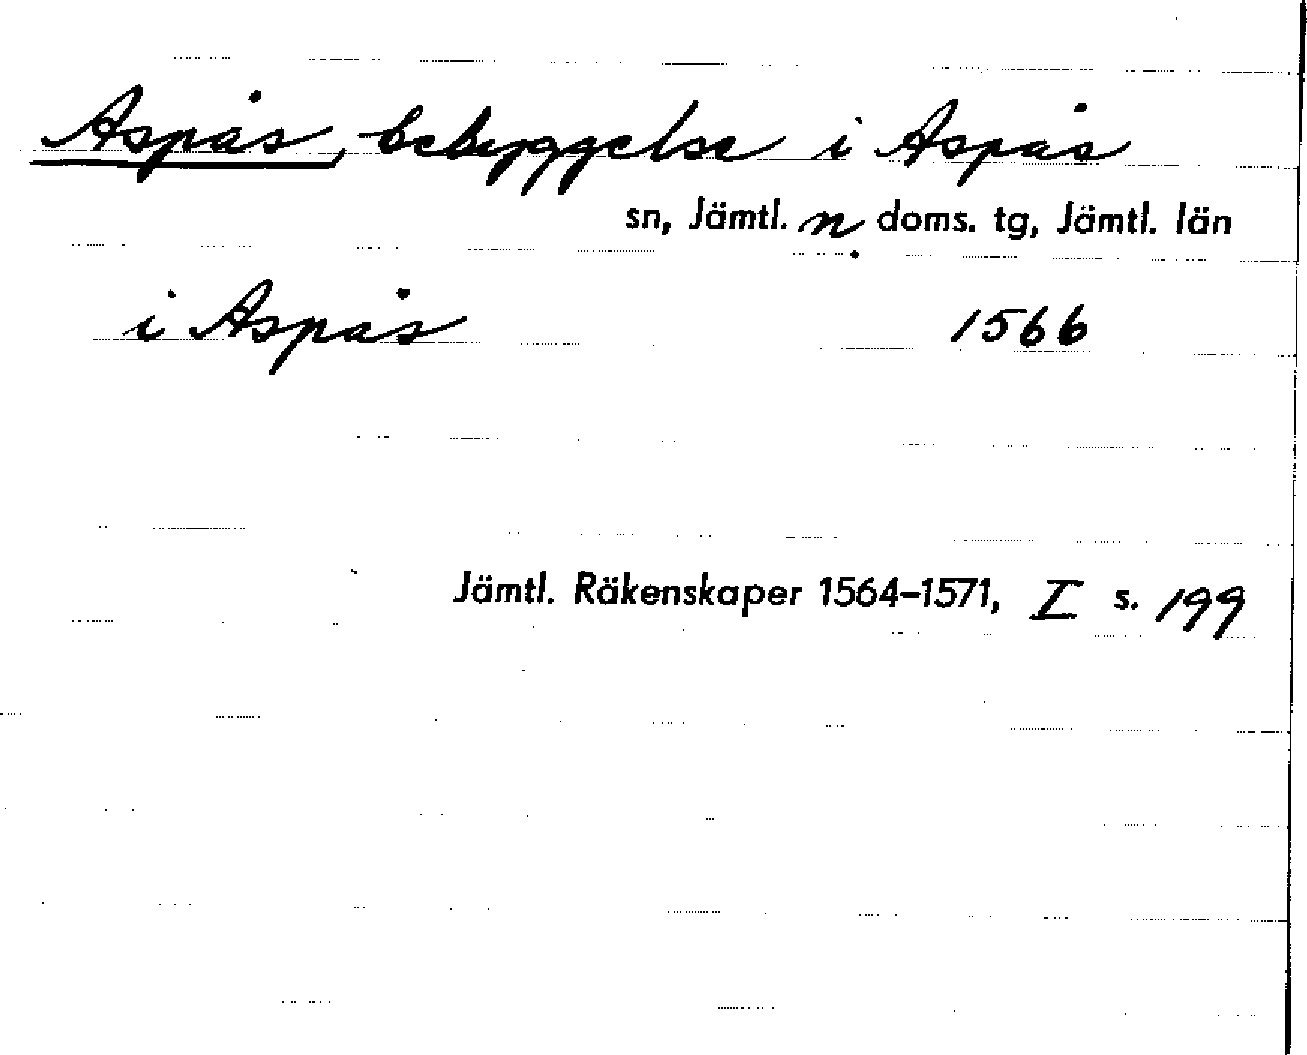 Aspås, bebyggelse i Aspås
sn, Jämtl. n. doms. tg, Jämtl. län
i Aspås 1566
Jämtl. Räkenskaper 1564–1571, I s. 199